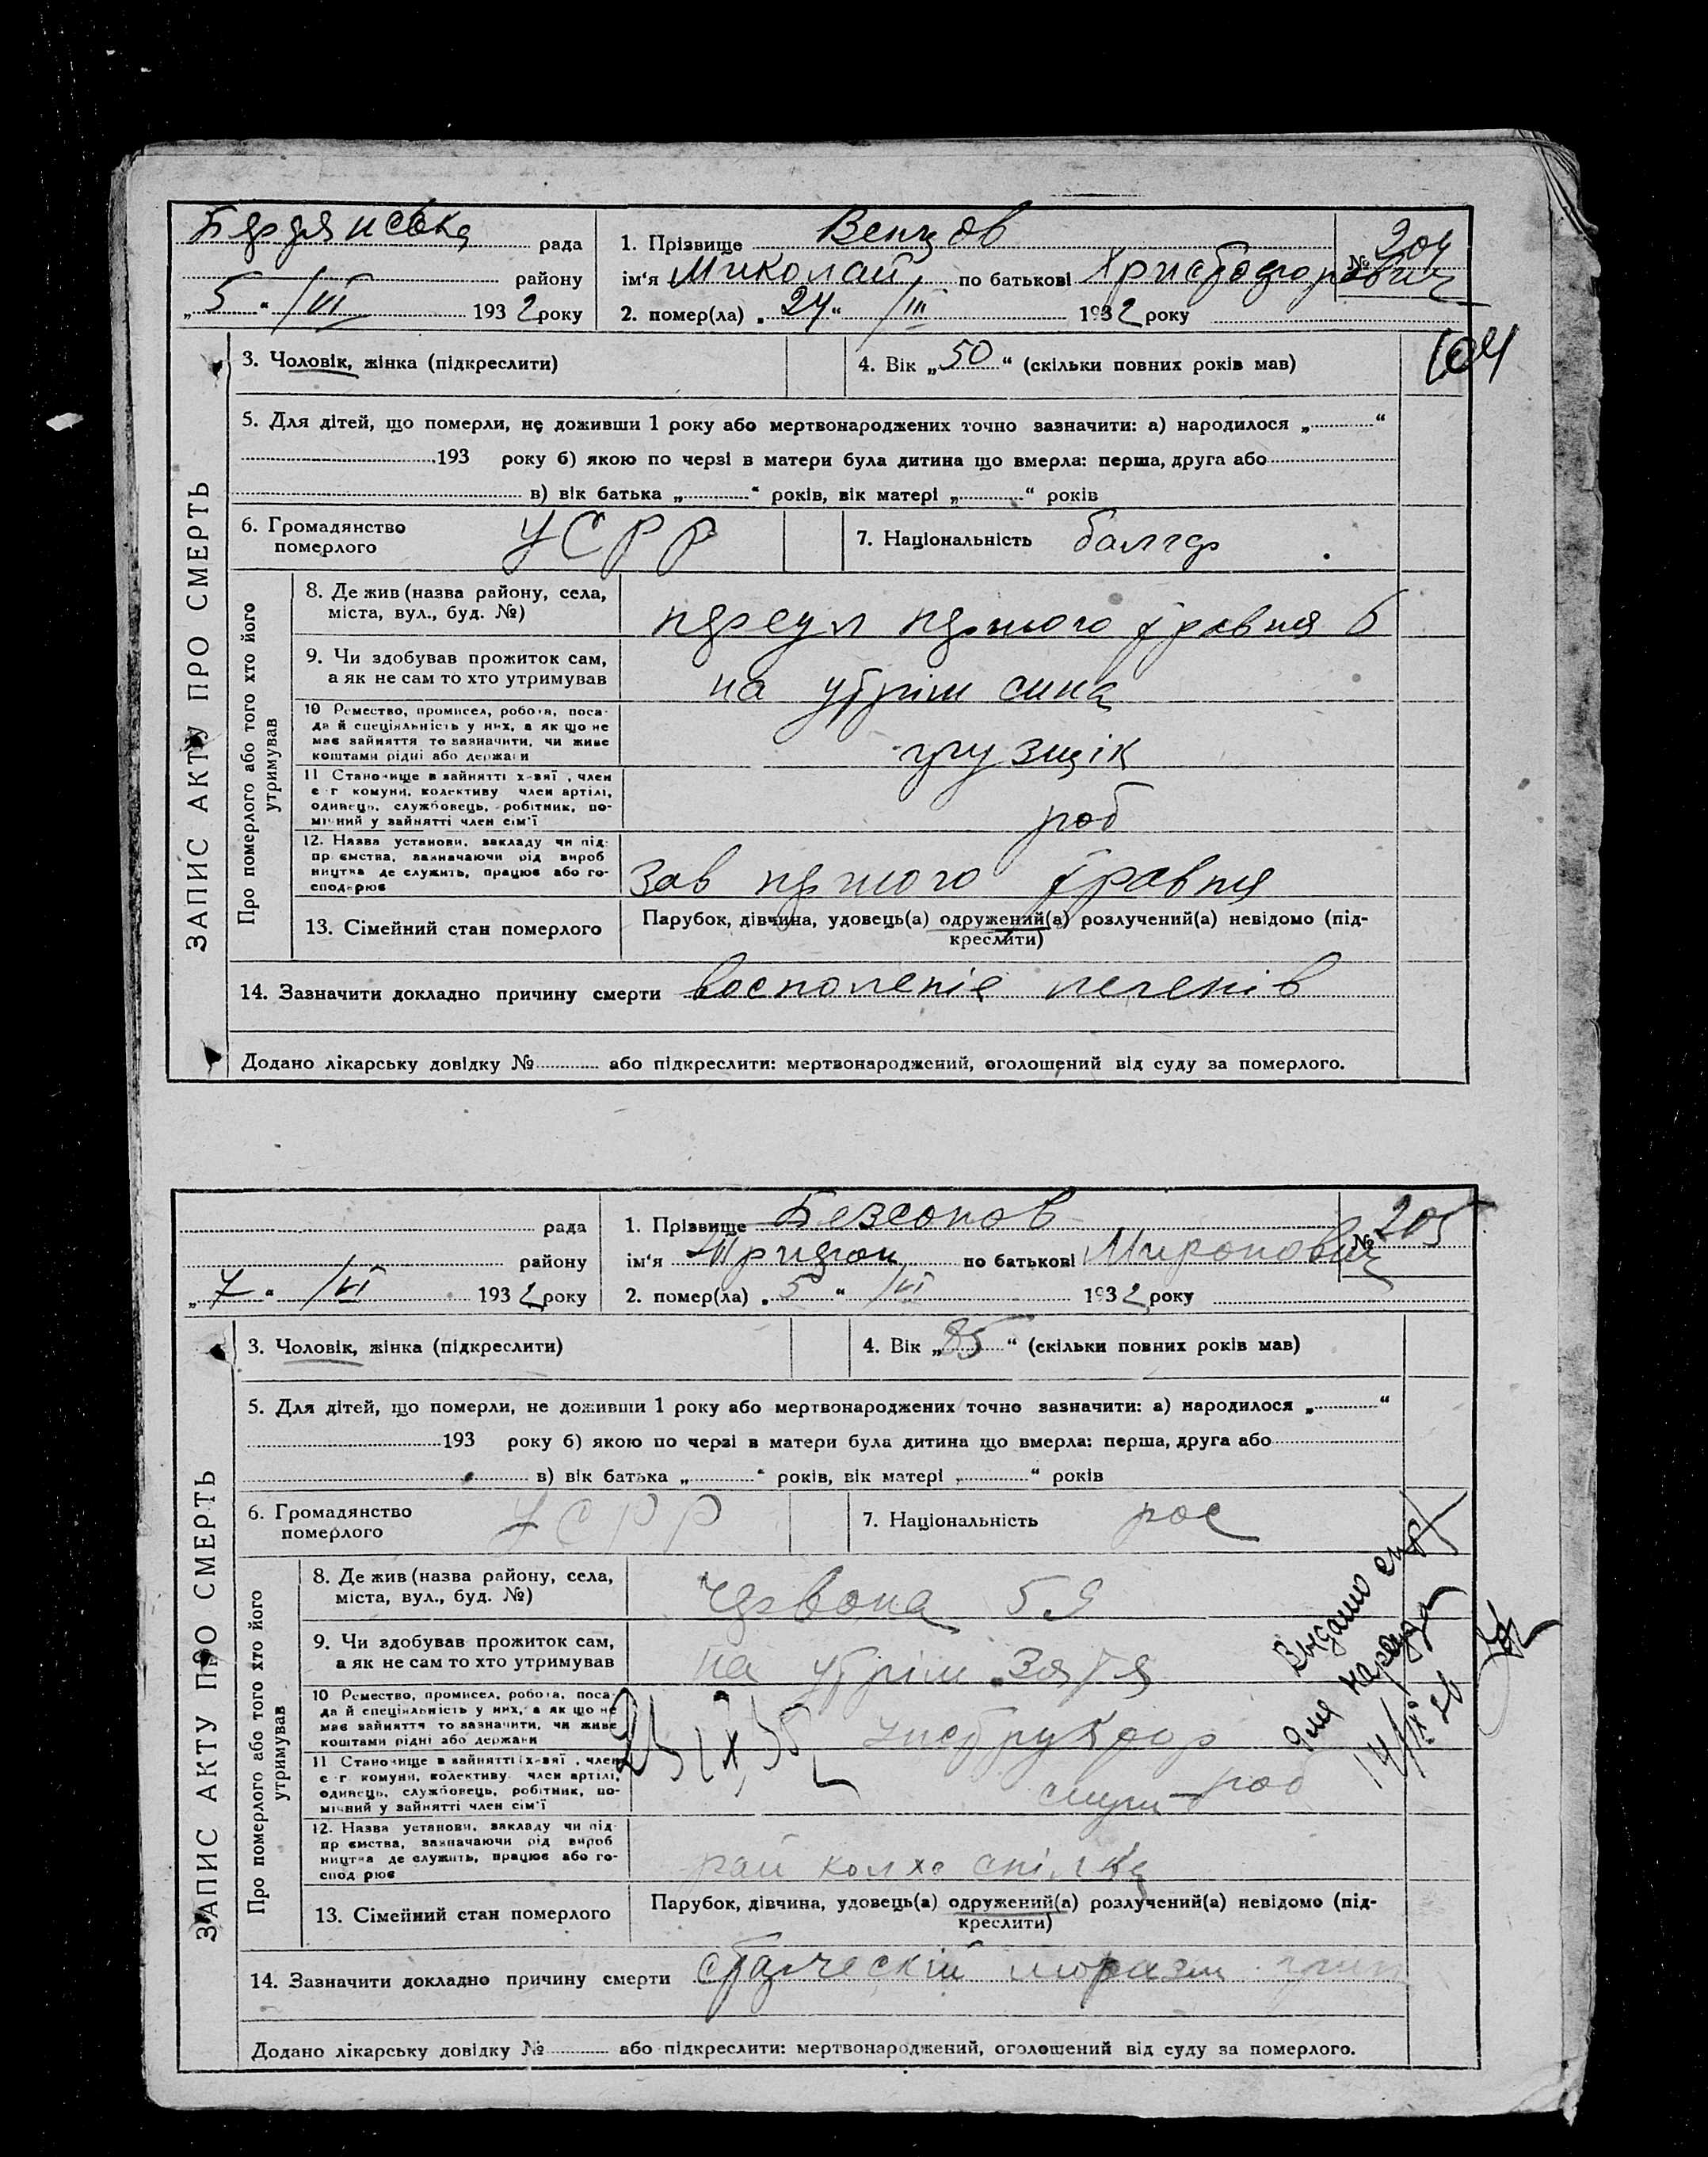 Бердянська рада
1. Прізвище Венцов № 204
району
ім'я Миколай по батькові Христофорович
„5" /VI 1932 року
2. помер(ла) „24" /III 1932 року
104
3. Чоловік, жінка (підкреслити)
4. Вік „50" (скільки повних років мав)
5. Для дітей, що померли, не доживши 1 року або мертвонароджених точно зазначити: а) народилося „ "
193 року б) якою по черзі в матери була дитина що вмерла: перша, друга або
в) вік батька „ " років, вік матері „ " років
6. Громадянство померлого УСРР
7. Національність болгар
ЗАПИС АКТУ ПРО СМЕРТЬ
Про померлого або того хто його утримував
8. Де жив (назва району, села,
міста, вул., буд. №)
переул першого травня 6
9. Чи здобував прожиток сам,
а як не сам то хто утримував
на утрім сина
10 Ремество, промисел, робота, поса-
да й спеціяльність у них, а як що не
має зайняття то зазначити, чи живе
коштами рідні або держави
грузщік
11 Становище в зайнятті х-вяї, член
с-г комуни, колективу член артілі,
одинець, службовець, робітник, по-
мічний у зайнятті член сім'ї
роб
12. Назва установи, закладу чи під-
пр ємства, зазначаючи рід вироб
ництва де служить, працює або го-
сподарює
зав першого травня
13. Сімейний стан померлого
Парубок, дівчина, удовець(а) одружений(а) розлучений(а) невідомо (під-
креслити)
14. Зазначити докладно причину смерти восполеніе легенів
Додано лікарську довідку № або підкреслити: мертвонароджений, оголошений від суду за померлого.
рада
1. Прізвище Безсонов № 205
району
ім'я по батькові Миронович
„7" /VI 1932 року
2. помер(ла) „5" /VI 1932 року
3. Чоловік, жінка (підкреслити)
4. Вік „85" (скільки повних років мав)
5. Для дітей, що померли, не доживши 1 року або мертвонароджених точно зазначити: а) народилося „ "
193 року б) якою по черзі в матери була дитина що вмерла: перша, друга або
в) вік батька „ " років, вік матері „ " років
6. Громадянство померлого УСРР
7. Національність рос
ЗАПИС АКТУ ПРО СМЕРТЬ
Про померлого або того хто його утримував
8. Де жив (назва району, села,
міста, вул., буд. №)
червона
9. Чи здобував прожиток сам,
а як не сам то хто утримував
на утрім зятя
10 Ремество, промисел, робота, поса-
да й спеціяльність у них, а як що не
має зайняття то зазначити, чи живе
коштами рідні або держави
інструктор
11 Становище в зайнятті х-вяї, член
с-г комуни, колективу член артілі,
одинець, службовець, робітник, по-
мічний у зайнятті член сім'ї
роб
12. Назва установи, закладу чи під-
пр ємства, зазначаючи рід вироб
ництва де служить, працює або го-
спод рює
рай колхо спілка
13. Сімейний стан померлого
Парубок, дівчина, удовець(а) одружений(а) розлучений(а) невідомо (під-
креслити)
14. Зазначити докладно причину смерти старческій моразм грип
Додано лікарську довідку № або підкреслити: мертвонароджений, оголошений від суду за померлого.
Выдано
для